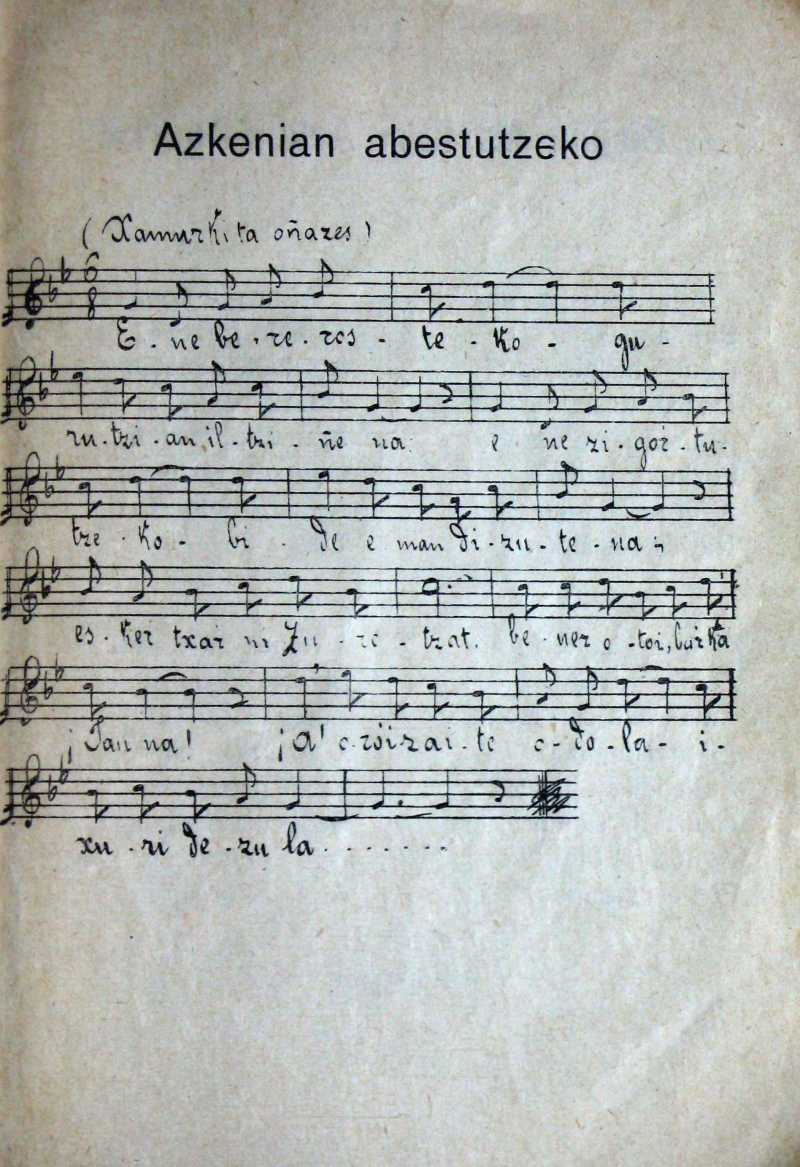 Azkenian abestutzeko
(Xamurki ta oñazes)
6
8
E - ne be - re - ros - te - ko - gu -
ru - tzi - an il - tzi - ñe na e ñe zi - gor - tu -
tze - ko - bi - de e man di - zu - te - na;
es - ker txar ni zu - re - tzat. be - ner o - toi, barka
¡Jau na! ¡A! e - roi zai - te o - do - la - i -
xu - ri de - zu la . . . . . . .